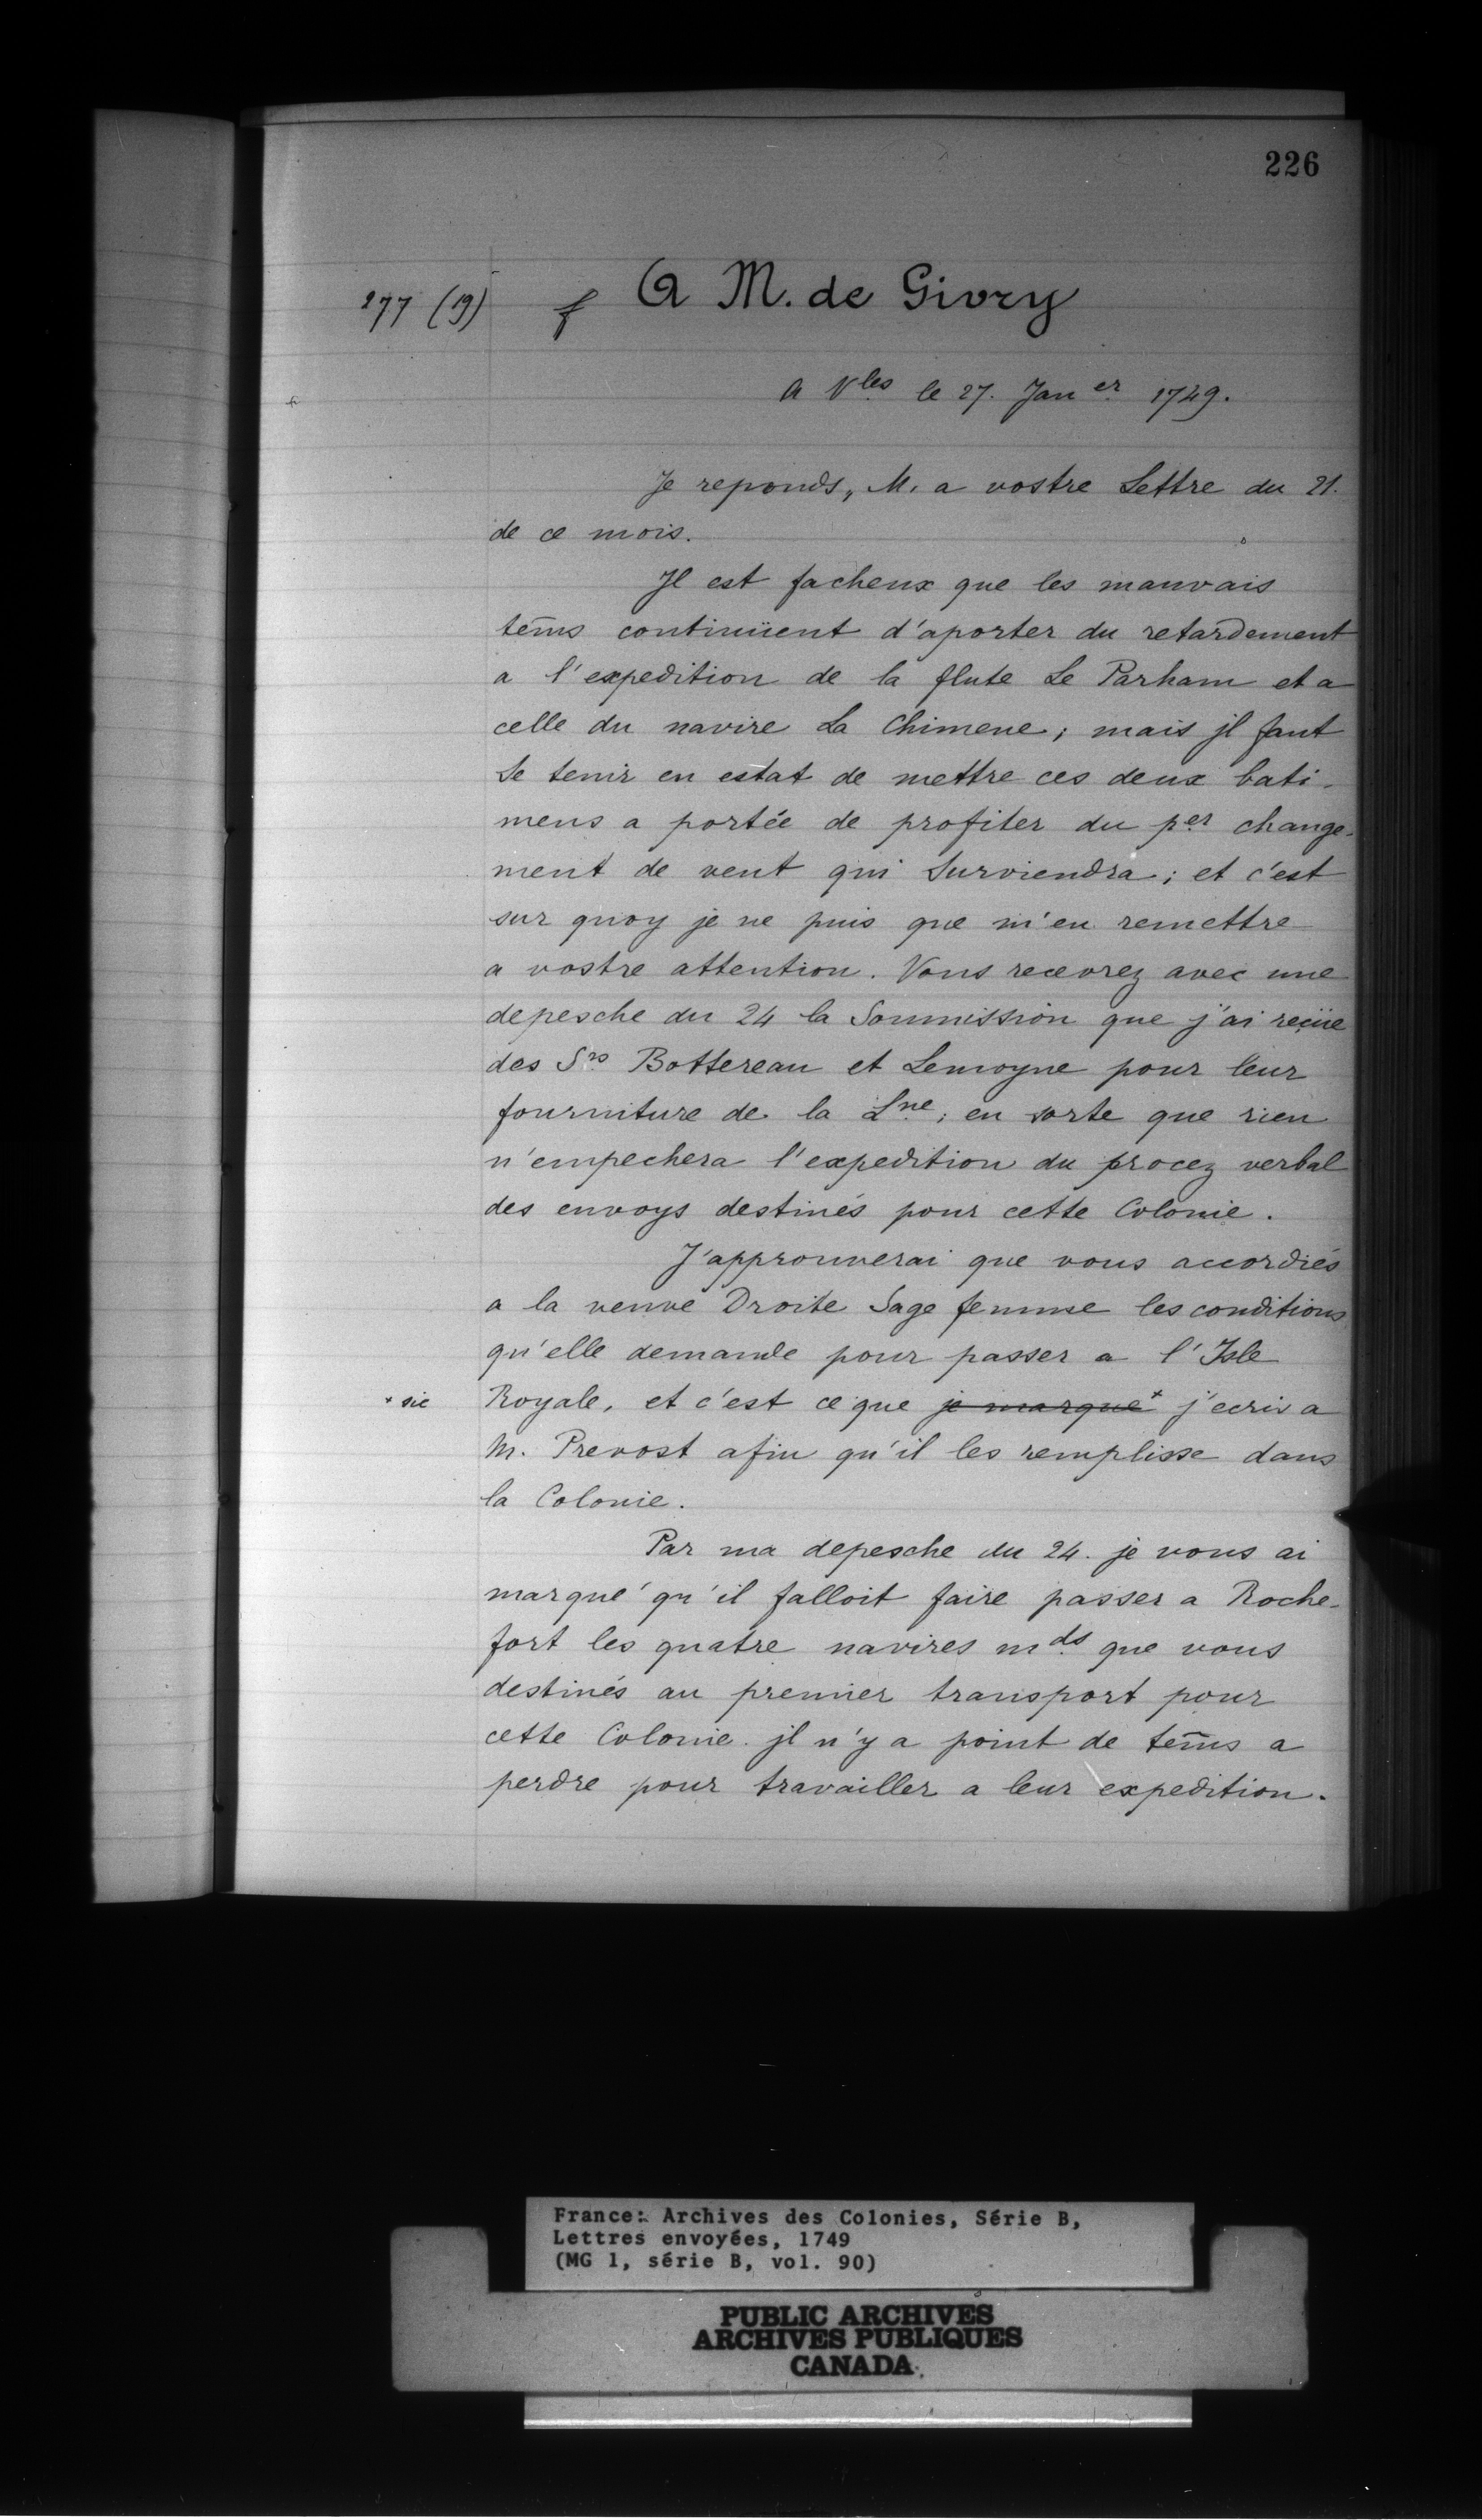 226
277 (19) f A M. de Givry
A Vles le 27. Janer 1749.
Je reponds, M. a vostre Lettre du 21.
de ce mois.
Jl est facheux que les mauvais
tem̄s continüent d'aporter du retardement
a l'expedition de la flute Le Parham et a
celle du navire La Chimene; mais jl faut
Se tenir en estat de mettre ces deux bati-
mens a portée de profiter du per change-
ment de vent qui Surviendra; et c'est
sur quoy je ne puis que m'en remettre
a vostre attention. Vous recevrez avec une
depesche du 24 la Soumission que j'ai reçüe
des Srs Bottereau et Lemoyne pour leur
fourniture de la Lne; en sorte que rien
n'empechera l'expedition du procez verbal
des envoys destinés pour cette Colonie.
J'approuverai que vous accordiés
a la veuve Droite Sage femme les conditions
qu'elle demande pour passer a l'Isle
+ sic Royale, et c'est ce que je marque+ j'ecris a
M. Prevost afin qu'il les remplisse dans
la Colonie.
Par ma depesche du 24. je vous ai
marqué qu'il falloit faire passer a Roche-
fort les quatre navires mds que vous
destinés au premier transport pour
cette Colonie. jl n'y a point de tem̄s a
perdre pour travailler a leur expedition.
France: Archives des Colonies, Série B,
Lettres envoyées, 1749
(MG 1, série B, vol. 90)
PUBLIC ARCHIVES
ARCHIVES PUBLIQUES
CANADA